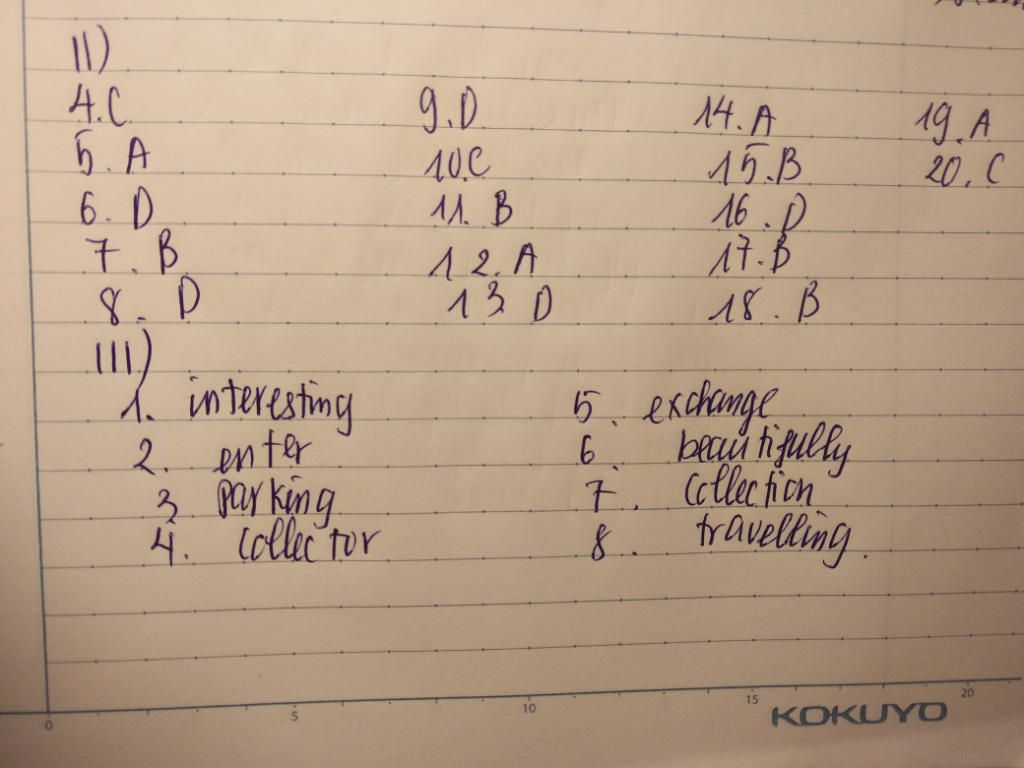 II)
4.C 9.D 14.A 19.A
5.A 10.C 15.B 20.C
6.D 11.B 16.D
7.B 12.A 17.B
8.D 13.D 18.B
III)
1. interesting 5. exchange
2. enter 6. beautifully
3. parking 7. collection
4. collector 8. travelling.
0 5 10 15 20
KOKUYO